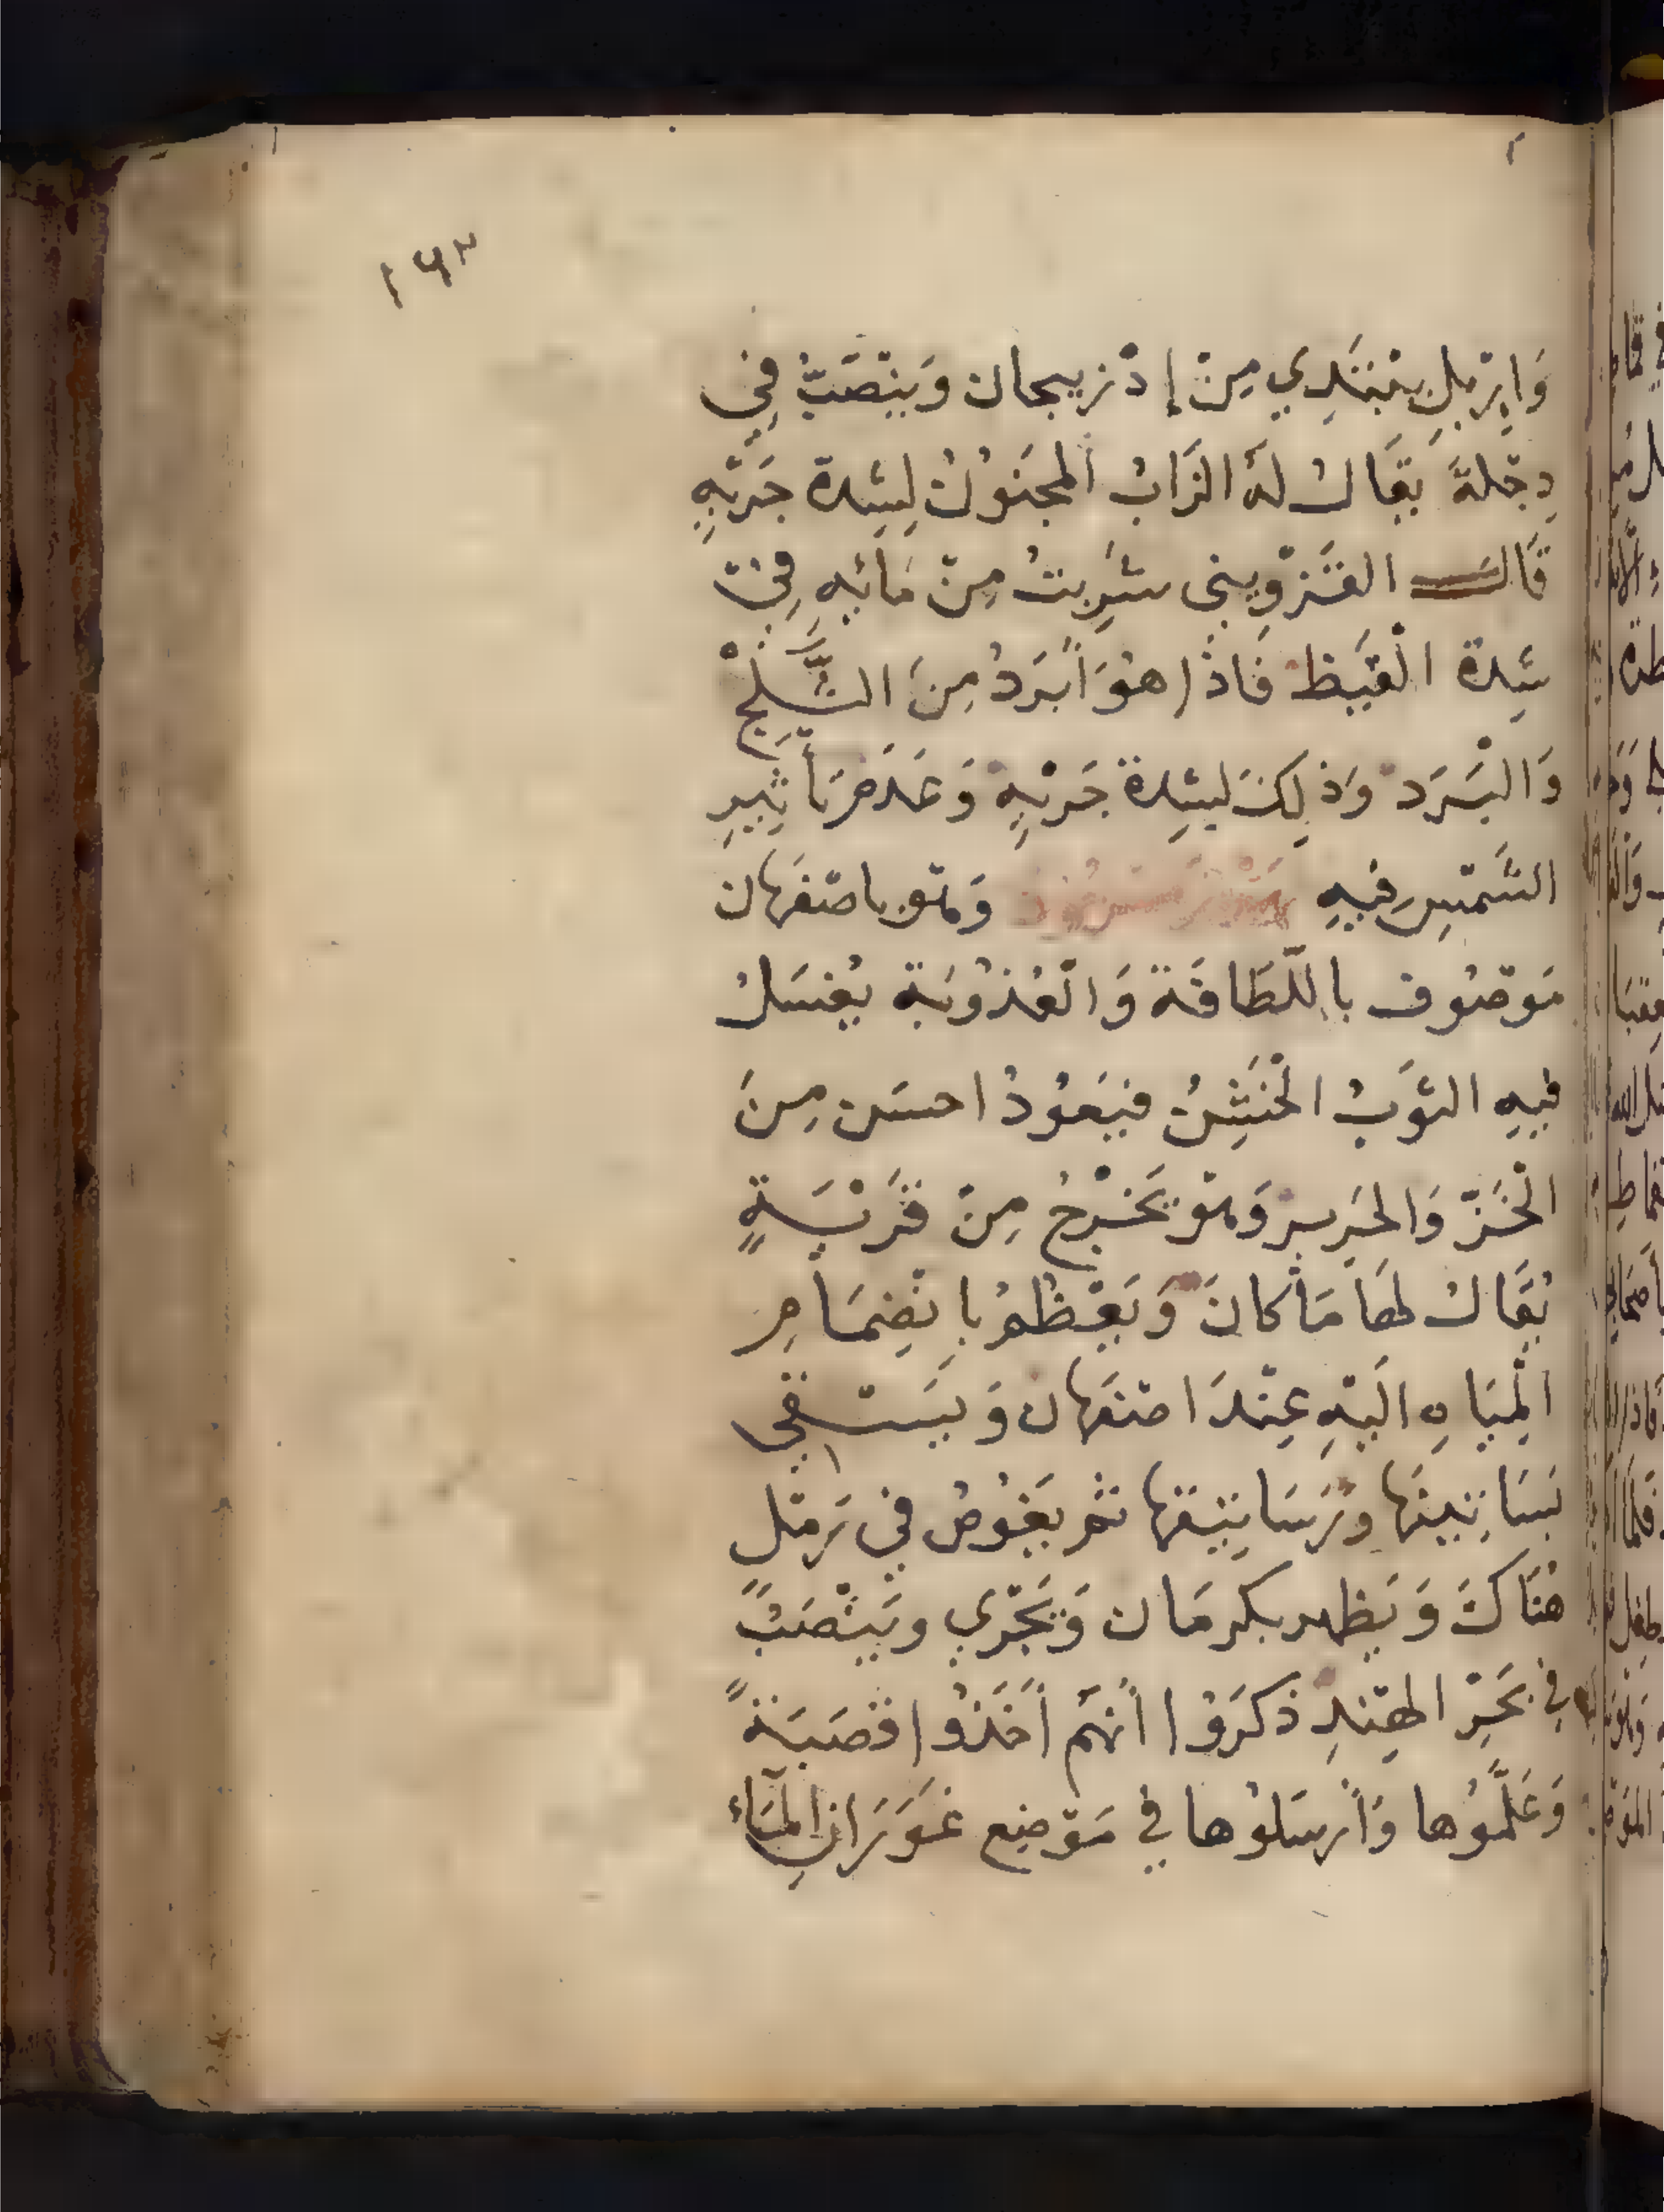 ١٦٣
وَاِرْبِلِ يَبْتَدِي مِنْ إِذْرَبِيجان وَيَنْصَبُّ فِي
دِجْلَةَ يُقَالُ لَهُ الزَّابُ الْمَجْنُونُ لِشِدة جَرْيِهِ
قَالَ القَزْوِينى شَرِبْتُ مِنْ مَائِهِ فِي
شِدة الْقَيْظ فَاذَا هُوَ أَبْرَدُ مِنَ الثَّلْجِ
وَالْبَرَد وَذلِكَ لِشِدة جَرْيِهِ وَعَدَمِ تَأثِيرِ
الشَّمْسِ فِيهِ وَهْوَ باصْفَهان
مَوْصُوف بِاللَّطَافَة وَالْعُذُوبَة يُغْسَلُ
فِيهِ الثَّوْبُ الْخَشِنُ فَيَعُودُ احسَن مِنَ
الْخَزِّ وَالحَرِير وَهْوَ يَخْرُجُ مِنْ قَرْيَةٍ
يُقَالُ لَهَا مَاكانَ وَيَعْظُمُ بِانْضِمَامِ
الْمِيَاهِ الَيْهِ عِنْدَ اصْفَهان وَيَسْتَقِي
بَسَاتِينَهَا وَرَسَاتِيقَها ثم يَغُوصُ فِي رَمْلٍ
هُنَاكَ وَيَظهر بكرمَان وَيَجْرِي ويَنْصَبُّ
فِي بَحْرِ الهِنْدِ ذكَرُوا أَنَّهُمْ أَخَذُوا قَصَبَةً
وَعَلَّمُوها وَأَرْسَلُوها في مَوْضِع غَوَرَانِ الْمَاءِ